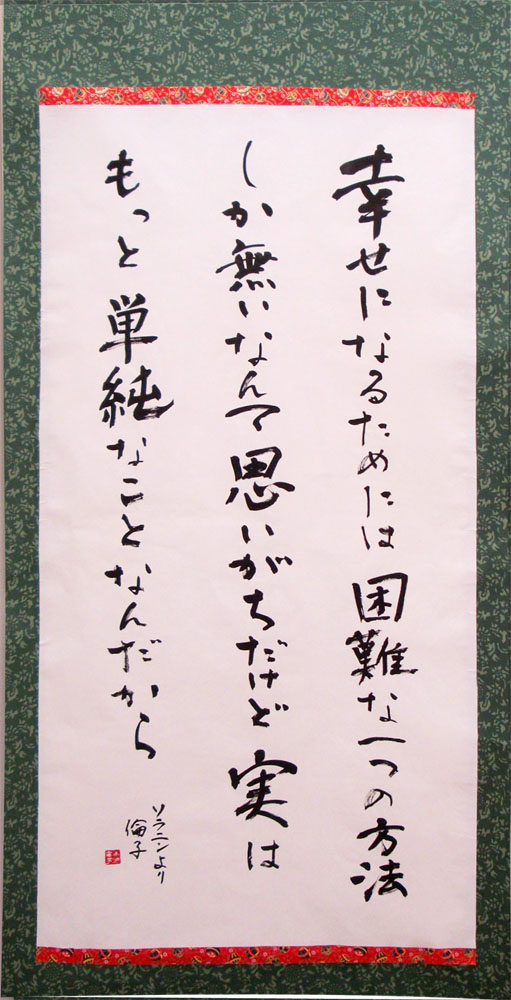 幸せになるためには困難な一つの方法
しか無いなんて思いがちだけど実は
もっと単純なことなんだから
ソラニンより
倫子